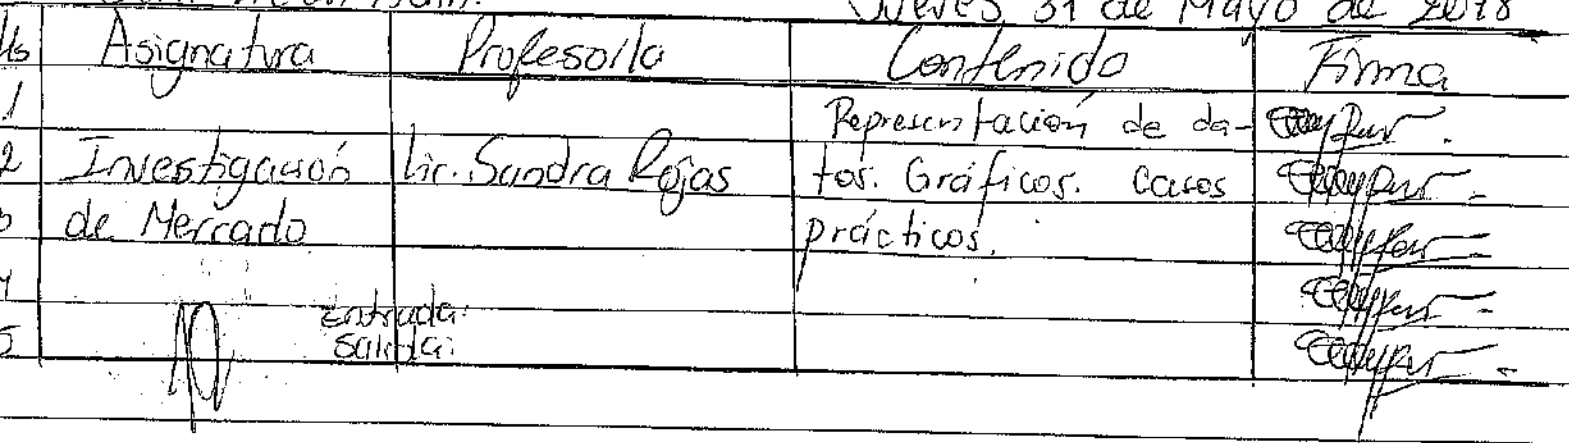 Jueves 31 de Mayo de 2018
Hs Asignatura Profesor/a Contenido Firma
1 Representación de da-
2 Investigación Lic. Sandra Rojas tos. Gráficos. Casos
3 de Mercado prácticos.
4
5 Entrada:
Salida: